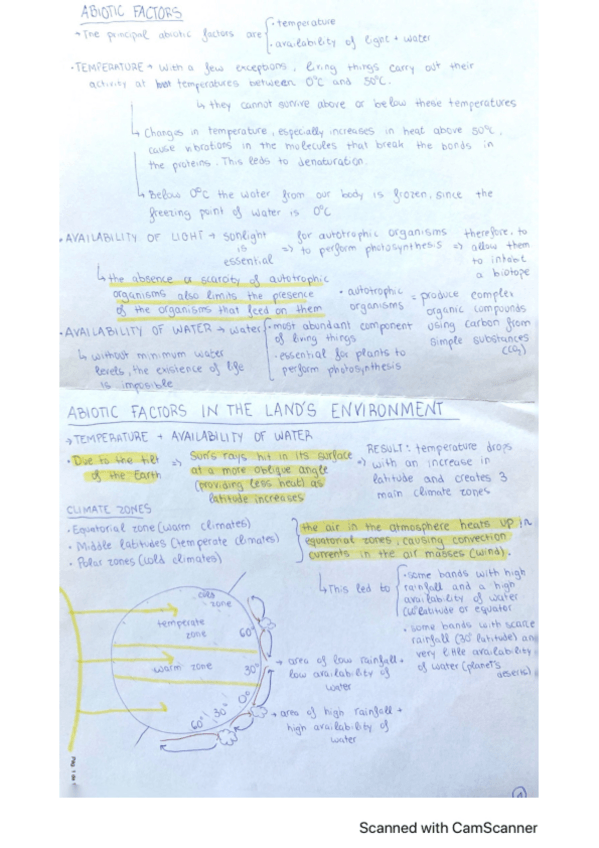 ABIOTIC FACTORS
→ The principal abiotic factors are
· temperature
· availability of light + water
· TEMPERATURE → With a few exceptions, living things carry out their
activity at temperatures between 0ºC and 50ºC.
↳ they cannot survive above or below these temperatures
↳ Changes in temperature, especially increases in heat above 50ºC,
cause vibrations in the molecules that break the bonds in
the proteins. This leds to denaturation.
↳ Below 0ºC the water from our body is frozen, since the
freezing point of water is 0ºC
· AVAILABILITY OF LIGHT → sunlight
is
essential
⇒ for autotrophic organisms
to perform photosynthesis
⇒ therefore, to
allow them
to inhabit
a biotope
↳ the absence or scarcity of autotrophic
organisms also limits the presence
of the organisms that feed on them
· autotrophic
organisms
= produce complex
organic compounds
using carbon from
simple substances
(CO2)
· AVAILABILITY OF WATER → water
· most abundant component
of living things
· essential for plants to
perform photosynthesis
↳ without minimum water
levels, the existence of life
is imposible
ABIOTIC FACTORS IN THE LAND'S ENVIRONMENT
→ TEMPERATURE + AVAILABILITY OF WATER
· Due to the tilt
of the Earth
⇒ Sun's rays hit in its surface
at a more oblique angle
(providing less heat) as
latitude increases
⇒ RESULT: temperature drops
with an increase in
latitude and creates 3
main climate zones
CLIMATE ZONES
· Equatorial zone (warm climates)
· Middle latitudes (temperate climates)
· Polar zones (cold climates)
the air in the atmosphere heats up in
equatorial zones, causing convection
currents in the air masses (wind).
↳ This led to
· some bands with high
rainfall and a high
availability of water
latitude or equator
· some bands with scarce
rainfall (30º latitude) and
very little availability
of water (planet's
deserts)
cold
zone
temperate
zone
60º
warm zone
30º
0º
30º
60º
→ area of low rainfall +
low availability of
water
→ area of high rainfall +
high availability of
water
Pág. 1 de 1
1
Scanned with CamScanner